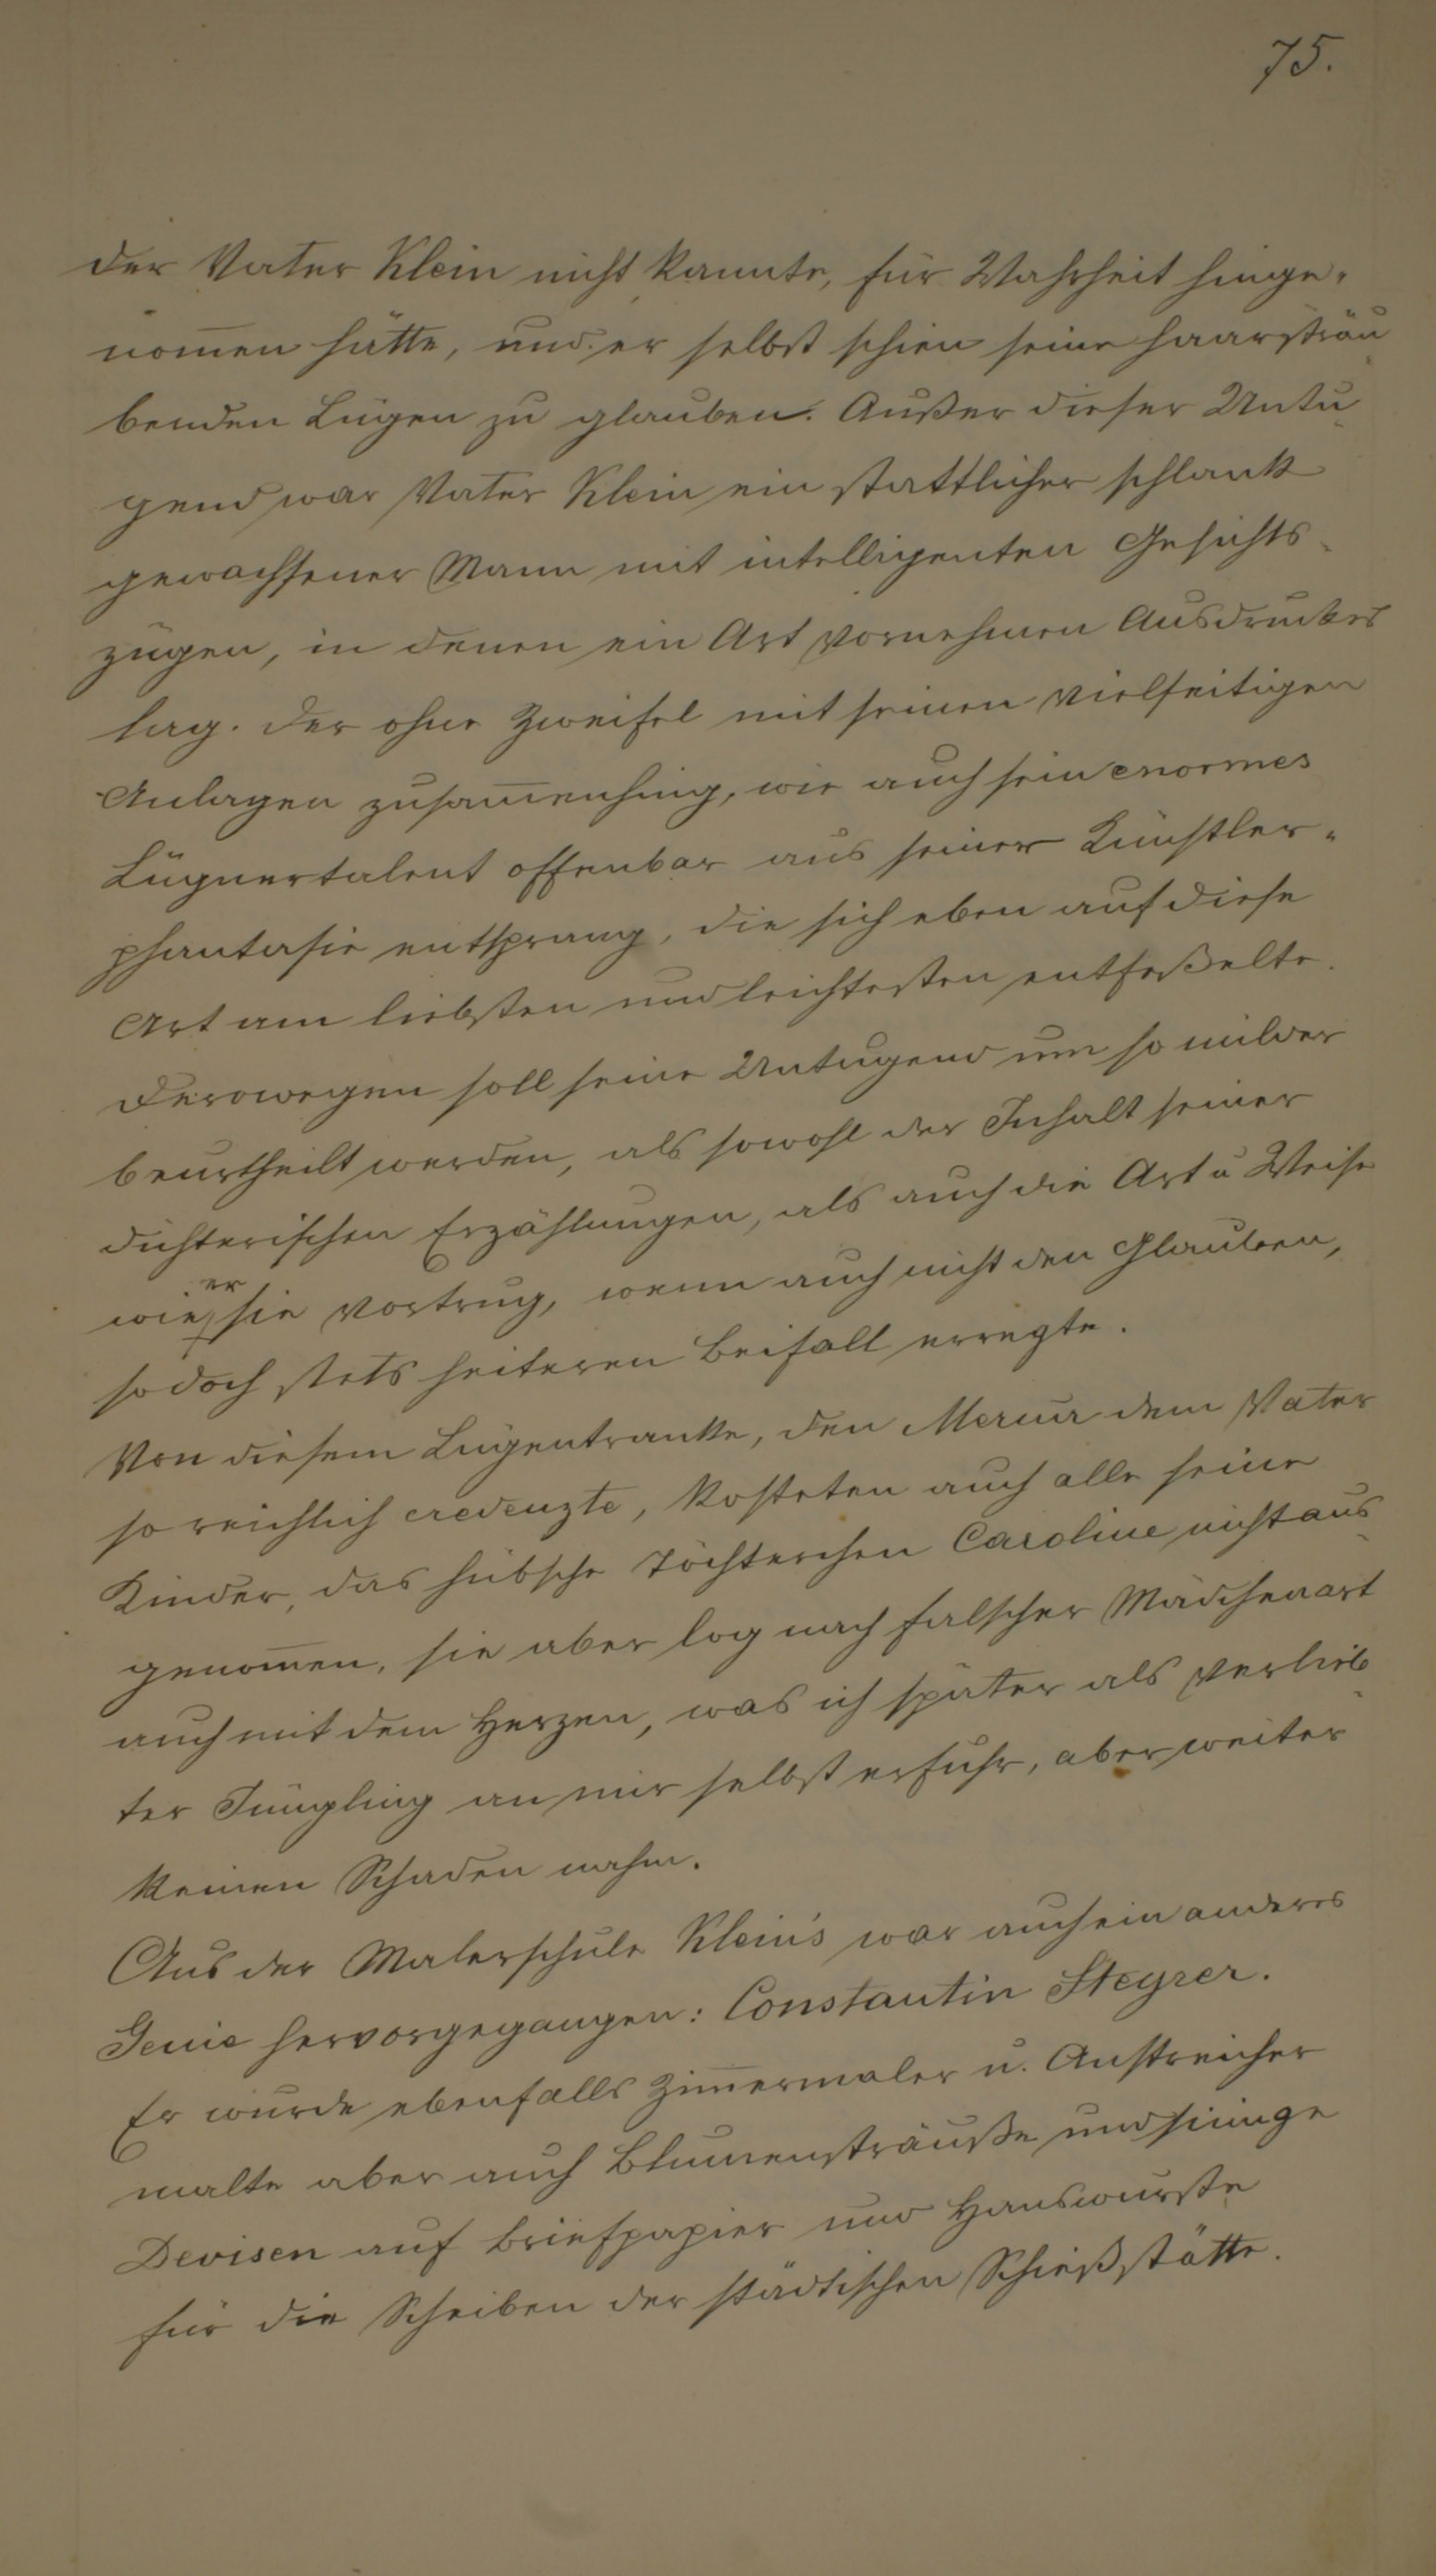 75.
der Vater Klein nicht kannte, für Wahrheit hinge-
nom̅en hätte, und er selbst schien seine haarsträu
benden Lügen zu glauben. Außer dieser Untu-
gend war Vater Klein ein stattlicher schlank
gewachsener Mann mit intelligenten Gesichts-
zügen, in denen ein Art vornehmen Ausdruckes
lag. der ohne Zweifel mit seinen vielseitigen
Anlagen zusam̅enhing, wie auch sein enormes
Lügnertalent offenbar aus seiner Künstler-
phantasie entsprang, die sich eben auf diese
Art am liebsten und leichtesten entfeßelte.
Derowegen soll seine Untugend um so milder
beurtheilt werden, als sowohl der Inhalt seiner
dichterischen Erzählungen, als auch die Art u Weise
wie er sie vortrug, wenn auch nicht den Glauben,
so doch stets heiteren Beifall erregte.
Von diesem Lügentranke, den Mercur dem Vater
so reichlich credenzte, kosteten auch alle seine
Kinder, das hübsche Töchterchen Caroline nicht aus-
genom̅en, sie aber log nach falscher Mädchenart
auch mit dem Herzen, was ich später als verlieb-
ter Jüngling an mir selbst erfuhr, aber weiter
keinen Schaden nahm.
Aus der Malerschule Klein's war auch ein anderes
Genie hervorgegangen: Constantin Steyrer.
Er wurde ebenfalls Zim̅ermaler u. Anstreicher
malte aber auch Blumensträuße und sinnige
Devisen auf Briefpapier und Hanswurste
für die Scheiben der städtischen Schießstätte.